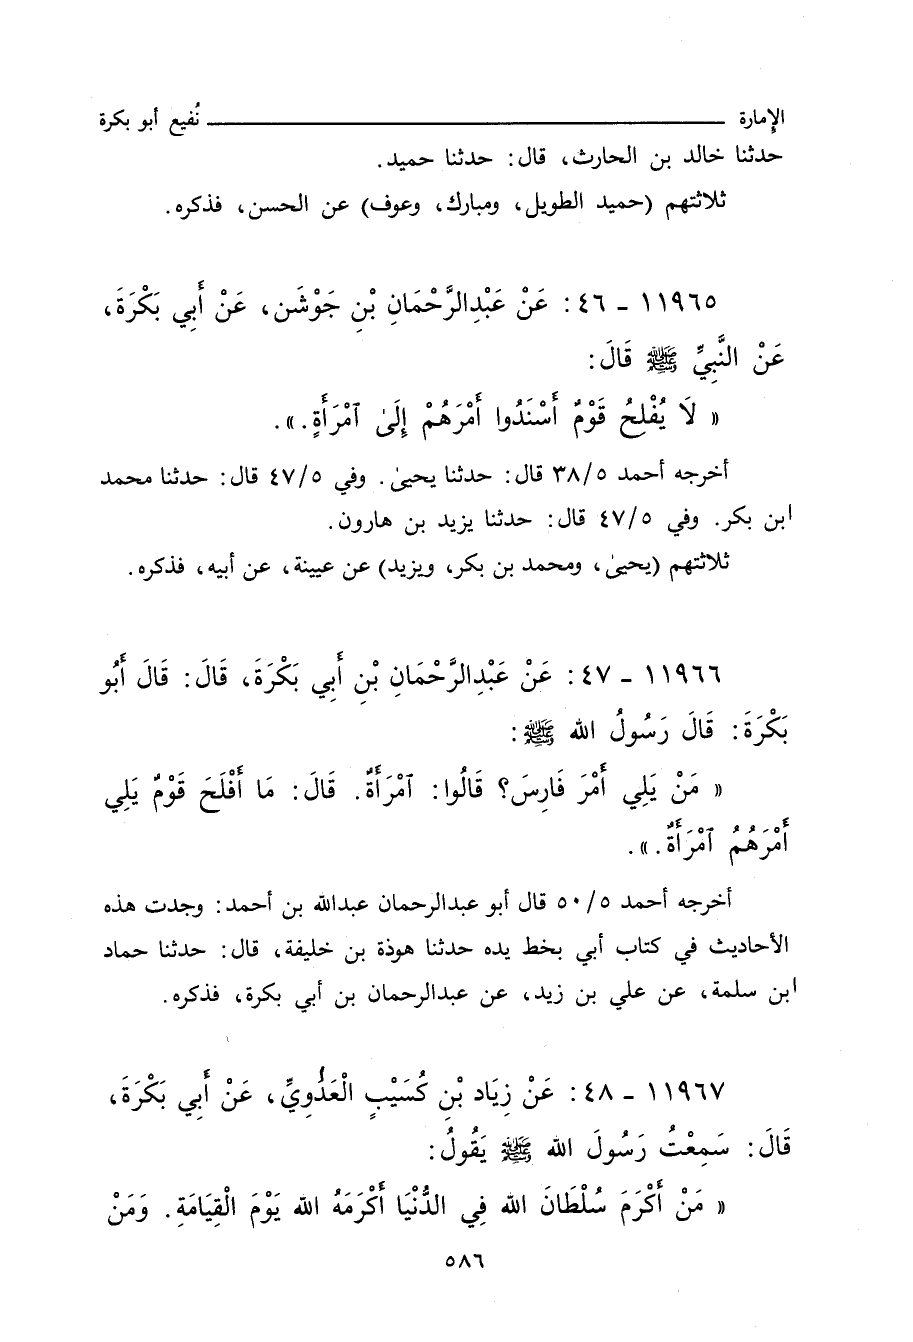 الإمارة ــــــــــــــــــــ نُفيع أبو بكرة
حدثنا خالد بن الحارث، قال: حدثنا حميد.
ثلاثتهم (حميد الطويل، ومبارك، وعوف) عن الحسن، فذكره.
١١٩٦٥ - ٤٦: عَنْ عَبْدِالرَّحْمَانِ بْنِ جَوْشَن، عَنْ أَبِي بَكْرَةَ،
عَنْ النَّبِيِّ ﷺ قَالَ:
« لَا يُفْلِحُ قَوْمٌ أَسْنَدُوا أَمْرَهُمْ إِلَىٰ ٱمْرَأَةٍ.».
أخرجه أحمد ٣٨/٥ قال: حدثنا يحيىٰ. وفي ٤٧/٥ قال: حدثنا محمد
ابن بكر. وفي ٤٧/٥ قال: حدثنا يزيد بن هارون.
ثلاثتهم (يحيىٰ، ومحمد بن بكر، ويزيد) عن عيينة، عن أبيه، فذكره.
١١٩٦٦ - ٤٧: عَنْ عَبْدِالرَّحْمَانِ بْنِ أَبِي بَكْرَةَ، قَالَ: قَالَ أَبُو
بَكْرَةَ: قَالَ رَسُولُ الله ﷺ:
« مَنْ يَلِي أَمْرَ فَارِسَ؟ قَالُوا: ٱمْرَأَةٌ. قَالَ: مَا أَفْلَحَ قَوْمٌ يَلِي
أَمْرَهُمُ ٱمْرَأَةٌ.».
أخرجه أحمد ٥٠/٥ قال أبو عبدالرحمان عبدالله بن أحمد: وجدت هذه
الأحاديث في كتاب أبي بخط يده حدثنا هوذة بن خليفة، قال: حدثنا حماد
ابن سلمة، عن علي بن زيد، عن عبدالرحمان بن أبي بكرة، فذكره.
١١٩٦٧ - ٤٨: عَنْ زِيَاد بْنِ كُسَيْبٍ الْعَدُوِيِّ، عَنْ أَبِي بَكْرَةَ،
قَالَ: سَمِعْتُ رَسُولَ الله ﷺ يَقُولُ:
« مَنْ أَكْرَمَ سُلْطَانَ الله فِي الدُّنْيَا أَكْرَمَهُ الله يَوْمَ الْقِيَامَةِ. وَمَنْ
٥٨٦